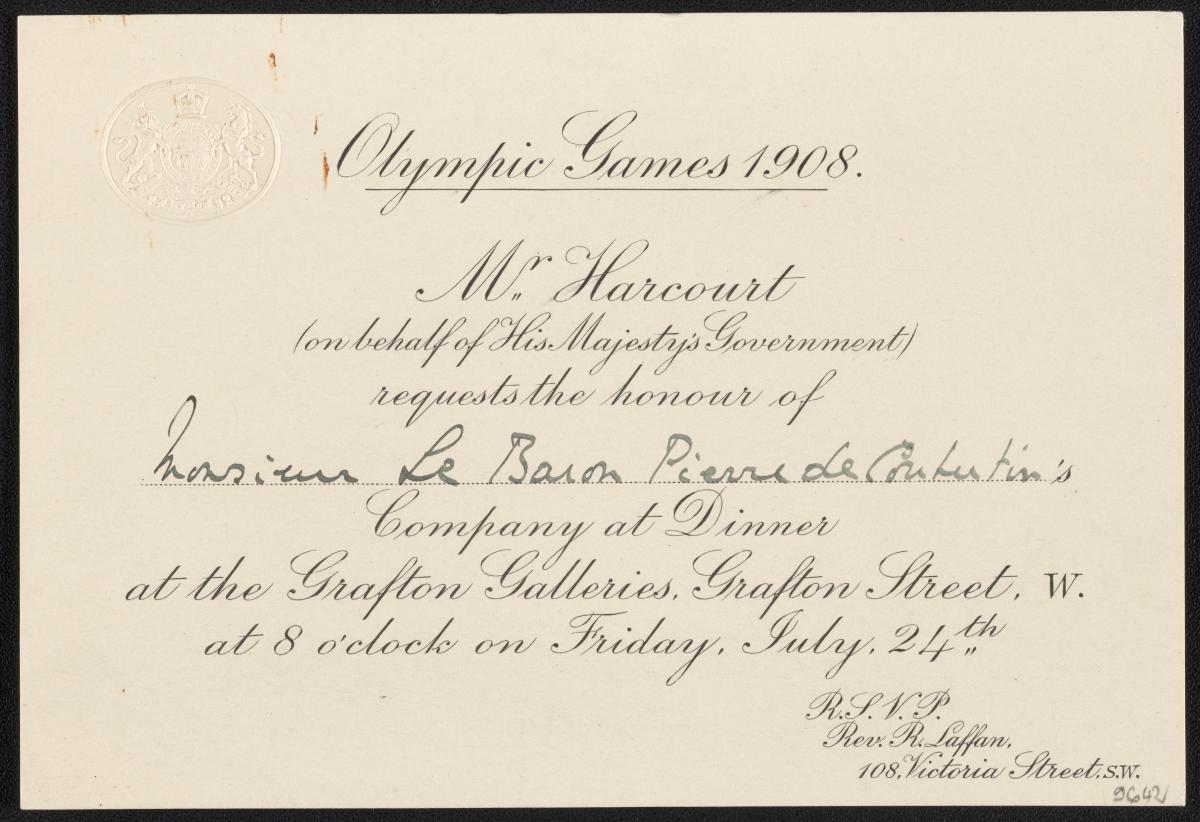 Olympic Games 1908.
Mr. Harcourt
(on behalf of His Majesty's Government)
requests the honour of
Monsieur Le Baron Pierre de Coubertin's
Company at Dinner
at the Grafton Galleries, Grafton Street, W.
at 8 o'clock on Friday, July, 24th
R.S.V.P.
Rev. R. Laffan,
108, Victoria Street, S.W.
9642